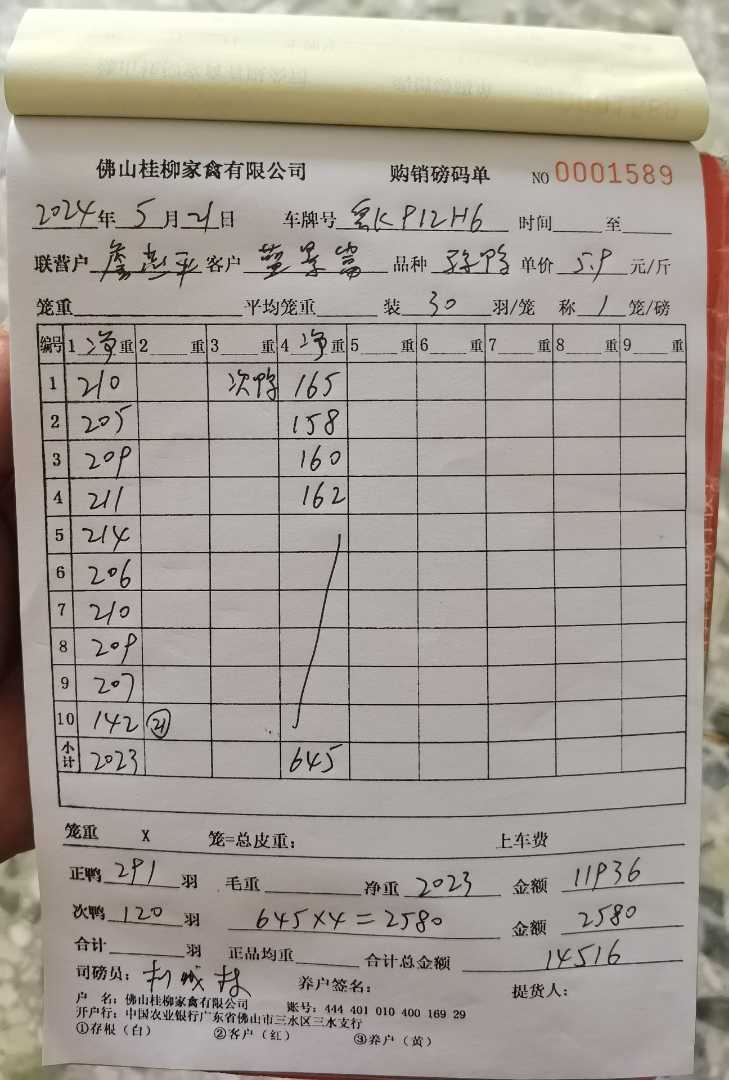 佛山桂柳家禽有限公司 购销磅码单 NO 0001589
2024年 5月 21日 车牌号 KP12H6 时间 至
联营户 平 客户 蓝景富 品种 鸭 单价 5.9 元/斤
笼重 平均笼重 装 30 羽/笼 称 1 笼/磅
编号 1 净重 2 重 3 重 4 净重 5 重 6 重 7 重 8 重 9 重
1 210 次鸭 165
2 205 158
3 209 160
4 211 162
5 214
6 206
7 210
8 209
9 207
10 142 21
小计 2023 645
笼重 X 笼=总皮重: 上车费
正鸭 291 羽 毛重 净重 2023 金额 11936
次鸭 120 羽 645×4=2580 金额 2580
合计 羽 正品均重 合计总金额 14516
司磅员: 养户签名: 提货人:
户 名: 佛山桂柳家禽有限公司 账号: 444 401 010 400 169 29
开户行: 中国农业银行广东省佛山市三水区三水支行
①存根(白) ②客户(红) ③养户(黄)